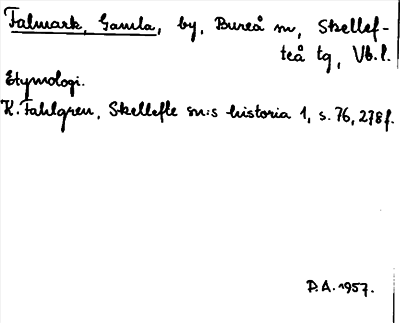 Falmark, Gamla, by, Bureå sn, Skellef-
teå tg, Vb.l.
Etymologi.
K. Fahlgren, Skellefte sn:s historia 1, s. 76, 278f.
D.A. 1957.